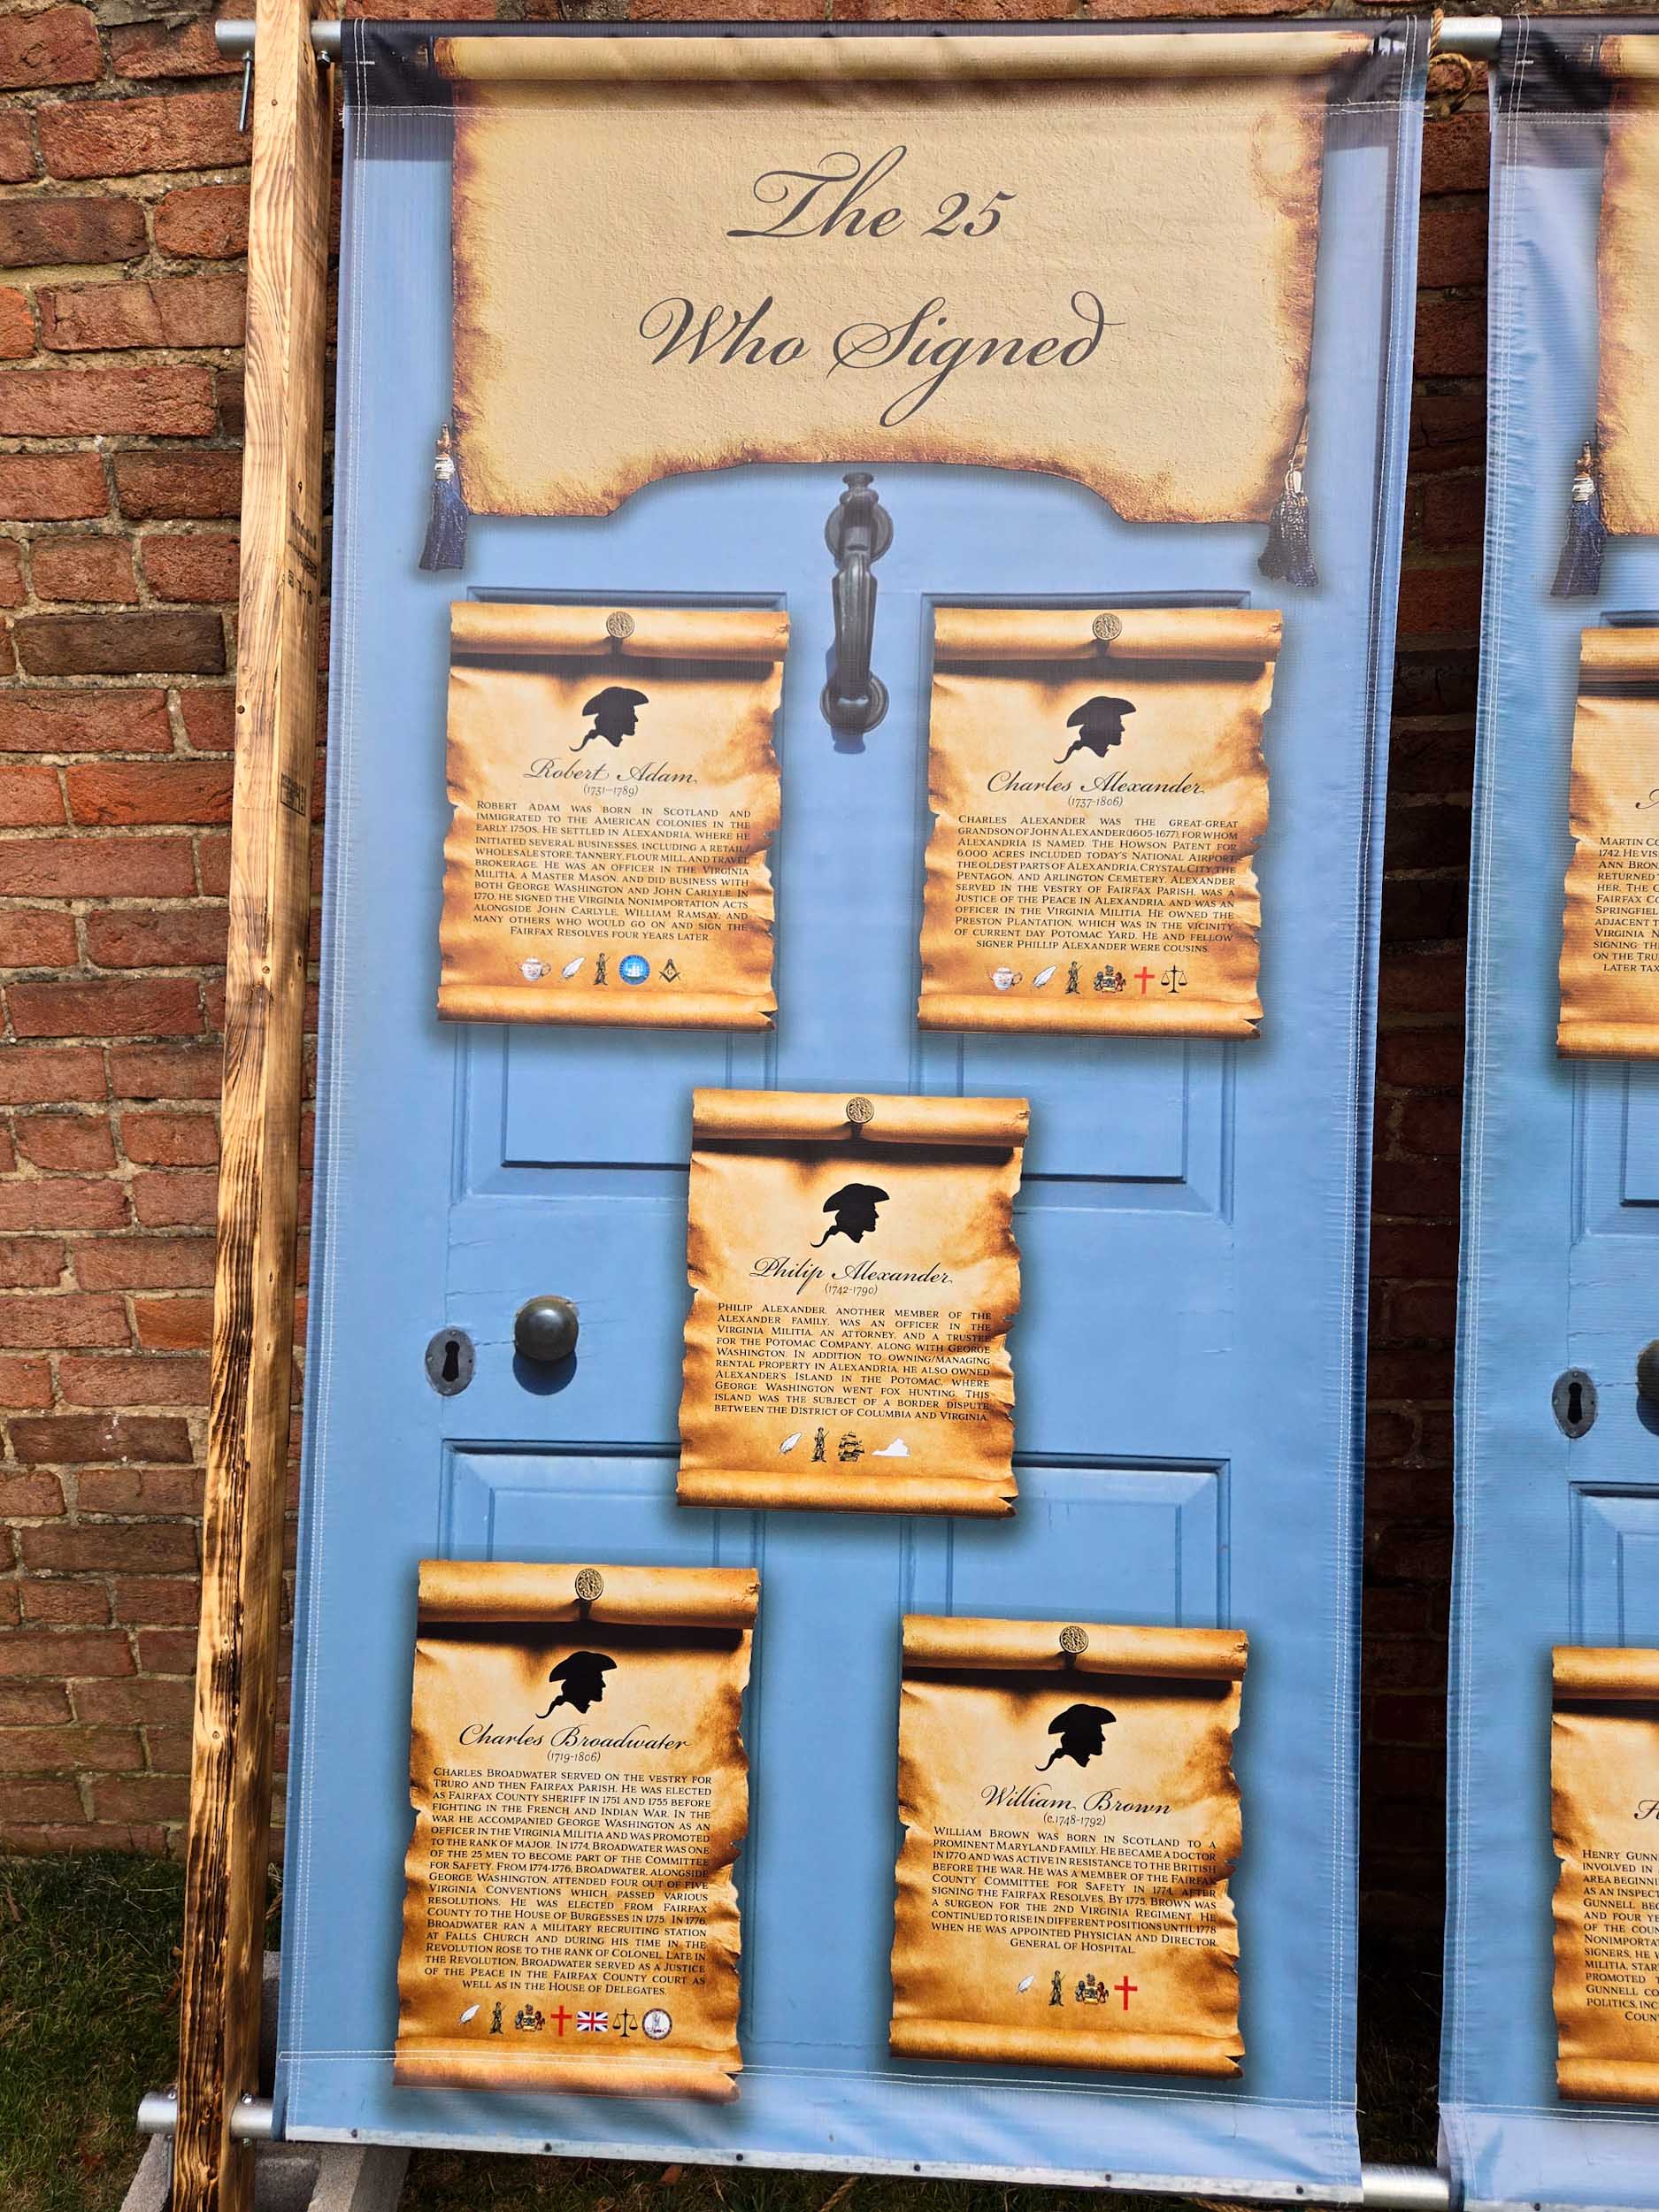 The 25
Who Signed
Robert Adam
(1731–1789)
ROBERT ADAM WAS BORN IN SCOTLAND AND
IMMIGRATED TO THE AMERICAN COLONIES IN THE
EARLY 1750S. HE SETTLED IN ALEXANDRIA, WHERE HE
INITIATED SEVERAL BUSINESSES, INCLUDING A RETAIL/
WHOLESALE STORE, TANNERY, FLOUR MILL, AND TRAVEL
BROKERAGE. HE WAS AN OFFICER IN THE VIRGINIA
MILITIA, A MASTER MASON, AND DID BUSINESS WITH
BOTH GEORGE WASHINGTON AND JOHN CARLYLE. IN
1770, HE SIGNED THE VIRGINIA NONIMPORTATION ACTS
ALONGSIDE JOHN CARLYLE, WILLIAM RAMSAY, AND
MANY OTHERS WHO WOULD GO ON AND SIGN THE
FAIRFAX RESOLVES FOUR YEARS LATER.
Charles Alexander
(1737-1806)
CHARLES ALEXANDER WAS THE GREAT-GREAT
GRANDSON OF JOHN ALEXANDER (1605-1677), FOR WHOM
ALEXANDRIA IS NAMED. THE HOWSON PATENT FOR
6,000 ACRES INCLUDED TODAY'S NATIONAL AIRPORT,
THE OLDEST PARTS OF ALEXANDRIA, CRYSTAL CITY, THE
PENTAGON, AND ARLINGTON CEMETERY. ALEXANDER
SERVED IN THE VESTRY OF FAIRFAX PARISH, WAS A
JUSTICE OF THE PEACE IN ALEXANDRIA, AND WAS AN
OFFICER IN THE VIRGINIA MILITIA. HE OWNED THE
PRESTON PLANTATION, WHICH WAS IN THE VICINITY
OF CURRENT DAY POTOMAC YARD. HE AND FELLOW
SIGNER PHILLIP ALEXANDER WERE COUSINS.
Philip Alexander
(1742-1790)
PHILIP ALEXANDER, ANOTHER MEMBER OF THE
ALEXANDER FAMILY, WAS AN OFFICER IN THE
VIRGINIA MILITIA, AN ATTORNEY, AND A TRUSTEE
FOR THE POTOMAC COMPANY, ALONG WITH GEORGE
WASHINGTON. IN ADDITION TO OWNING/MANAGING
RENTAL PROPERTY IN ALEXANDRIA, HE ALSO OWNED
ALEXANDER'S ISLAND IN THE POTOMAC, WHERE
GEORGE WASHINGTON WENT FOX HUNTING. THIS
ISLAND WAS THE SUBJECT OF A BORDER DISPUTE
BETWEEN THE DISTRICT OF COLUMBIA AND VIRGINIA.
Charles Broadwater
(1719-1806)
CHARLES BROADWATER SERVED ON THE VESTRY FOR
TRURO AND THEN FAIRFAX PARISH. HE WAS ELECTED
AS FAIRFAX COUNTY SHERIFF IN 1751 AND 1755 BEFORE
FIGHTING IN THE FRENCH AND INDIAN WAR. IN THE
WAR HE ACCOMPANIED GEORGE WASHINGTON AS AN
OFFICER IN THE VIRGINIA MILITIA AND WAS PROMOTED
TO THE RANK OF MAJOR. IN 1774, BROADWATER WAS ONE
OF THE 25 MEN TO BECOME PART OF THE COMMITTEE
FOR SAFETY. FROM 1774-1776, BROADWATER, ALONGSIDE
GEORGE WASHINGTON, ATTENDED FOUR OUT OF FIVE
VIRGINIA CONVENTIONS WHICH PASSED VARIOUS
RESOLUTIONS. HE WAS ELECTED FROM FAIRFAX
COUNTY TO THE HOUSE OF BURGESSES IN 1775. IN 1776,
BROADWATER RAN A MILITARY RECRUITING STATION
AT FALLS CHURCH AND DURING HIS TIME IN THE
REVOLUTION ROSE TO THE RANK OF COLONEL. LATE IN
THE REVOLUTION, BROADWATER SERVED AS A JUSTICE
OF THE PEACE IN THE FAIRFAX COUNTY COURT AS
WELL AS IN THE HOUSE OF DELEGATES.
William Brown
(c.1748-1792)
WILLIAM BROWN WAS BORN IN SCOTLAND TO A
PROMINENT MARYLAND FAMILY. HE BECAME A DOCTOR
IN 1770 AND WAS ACTIVE IN RESISTANCE TO THE BRITISH
BEFORE THE WAR. HE WAS A MEMBER OF THE FAIRFAX
COUNTY COMMITTEE FOR SAFETY IN 1774, AFTER
SIGNING THE FAIRFAX RESOLVES. BY 1775, BROWN WAS
A SURGEON FOR THE 2ND VIRGINIA REGIMENT. HE
CONTINUED TO RISE IN DIFFERENT POSITIONS UNTIL 1778
WHEN HE WAS APPOINTED PHYSICIAN AND DIRECTOR
GENERAL OF HOSPITAL.
MARTIN
1742. HE
ANN
RETURNED
HER. THE
FAIRFAX
SPRINGFIEL
ADJACENT
VIRGINIA
SIGNING
ON THE
LATER
HENRY
INVOLVED IN
AREA
AS AN
GUNNELL
AND FOUR
OF THE
SIGNERS, HE
MILITIA,
PROMOTED
GUNNELL
POLITICS,